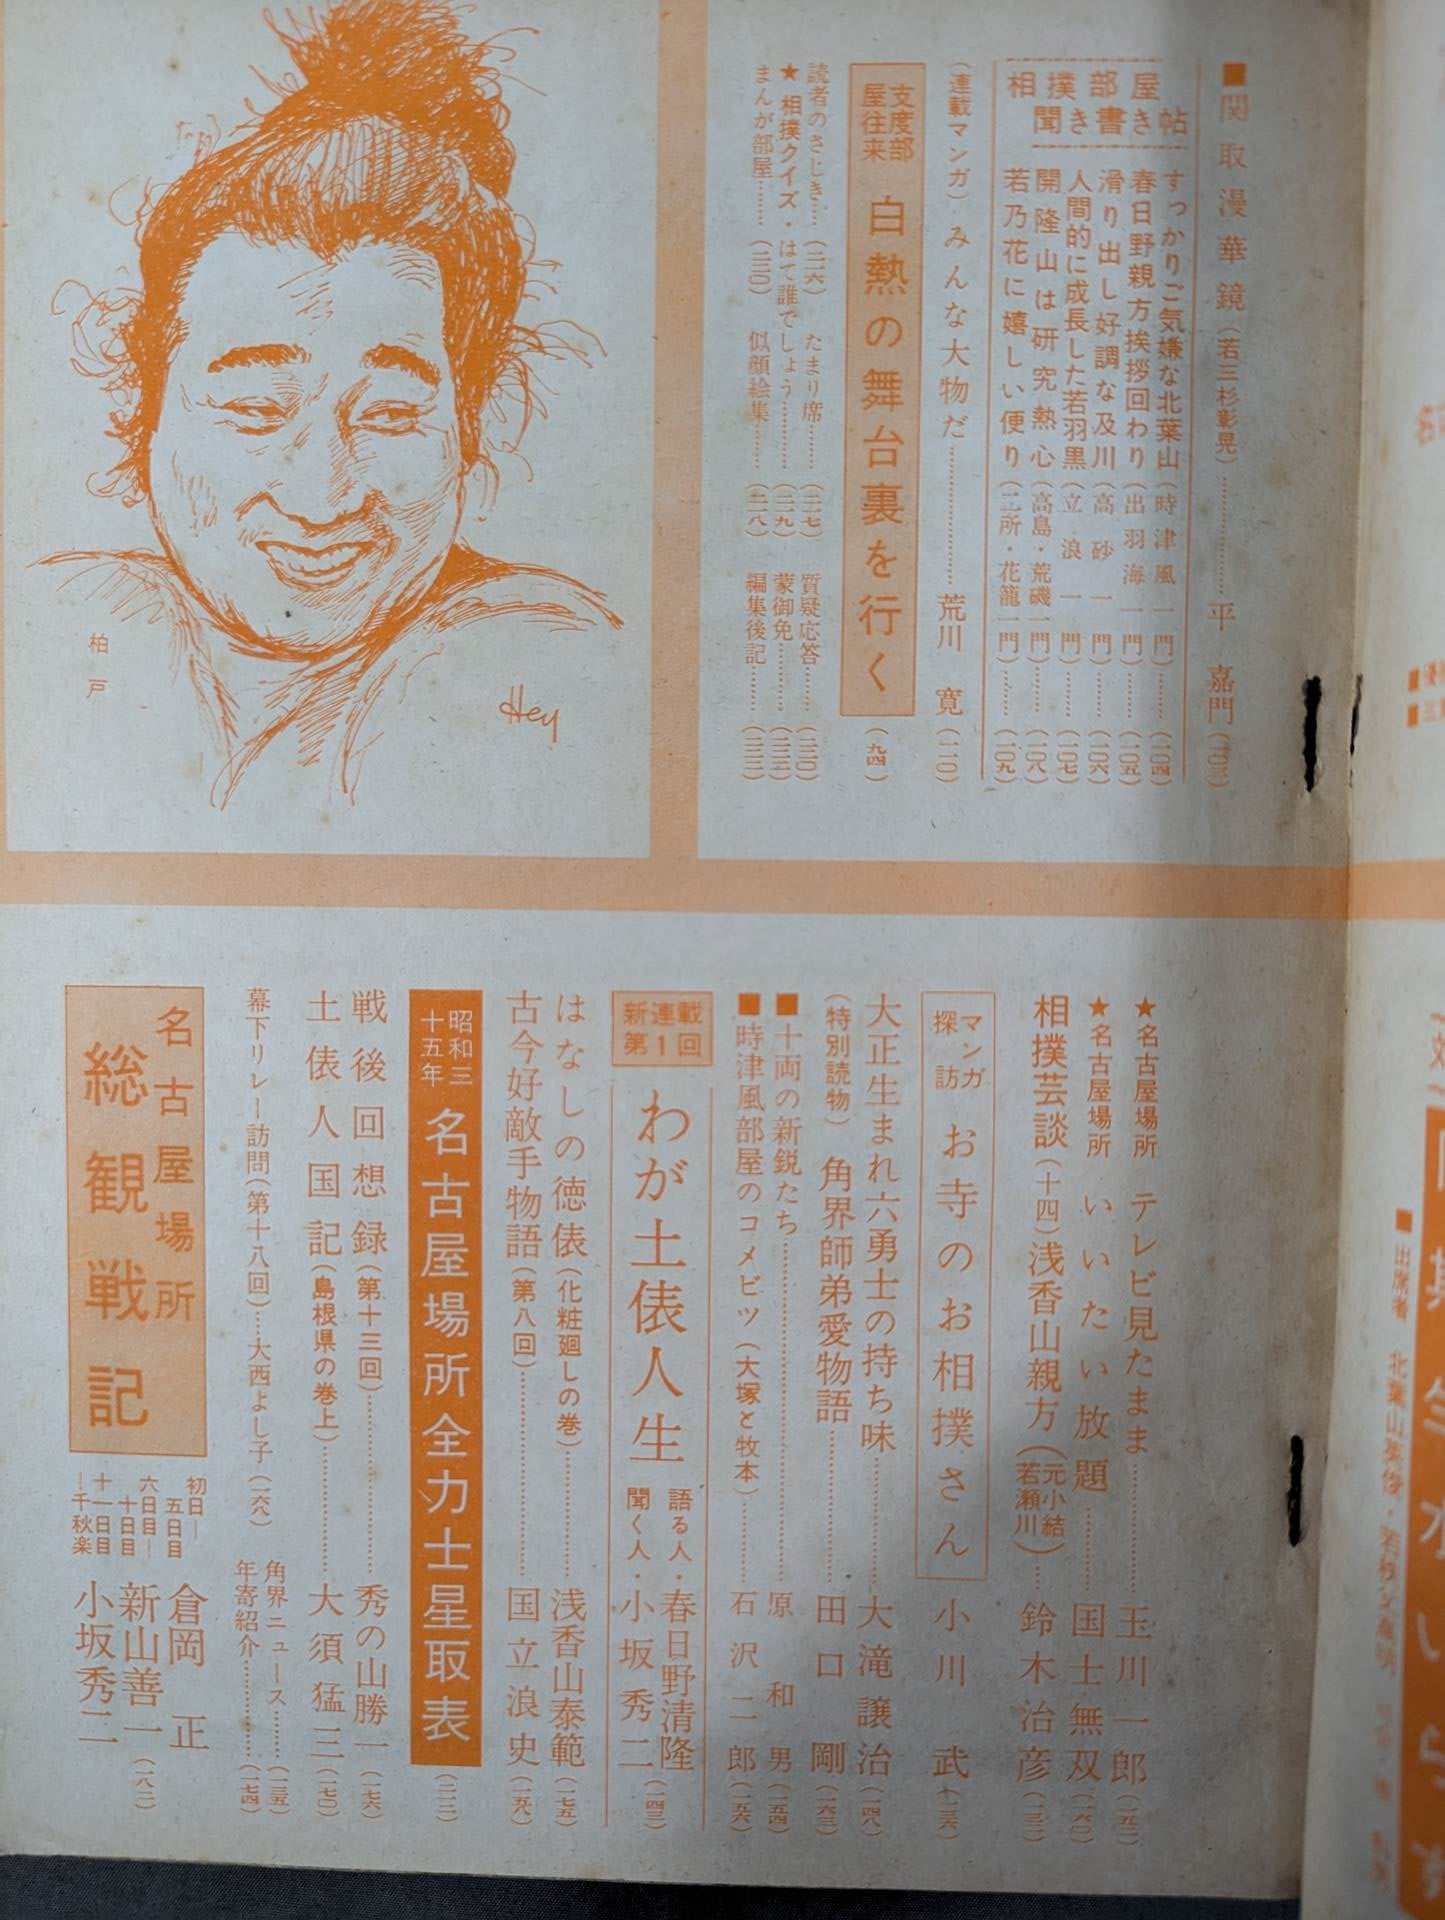 ■関取漫華鏡(若三杉彰晃)…………平嘉門(二〇三)
相撲部屋
聞き書き帖
すっかりご気嫌な北葉山(時津風一門)……(一〇四)
春日野親方挨拶回わり(出羽海一門)……(一〇五)
滑り出し好調な及川(高砂一門)……(一〇六)
人間的に成長した若羽黒(立浪一門)……(一〇七)
開隆山は研究熱心(高島・荒磯一門)……(一〇八)
若乃花に嬉しい便り(二所・花籠一門)……(一〇九)
(連載マンガ)みんな大物だ…………荒川寛(一一〇)
支度部屋往来 白熱の舞台裏を行く(九四)
読者のさじき…(二一六)
たまり席……(二一七)
質疑応答……(二二〇)
★相撲クイズ・はて誰でしょう……(二一九)
蒙御免……
まんが部屋……(二二〇)
似顔絵集……(二一八)
編集後記……(二二二)
柏戸
Hey
★名古屋場所 テレビ見たまま…………玉川一郎(一五二)
★名古屋場所 いいたい放題……国士無双(一六〇)
相撲芸談(十四)浅香山親方(元小結若瀬川)…鈴木治彦(一三二)
マンガ探訪 お寺のお相撲さん 小川武(一三六)
大正生まれ六勇士の持ち味…………大滝譲治(一四八)
(特別読物)角界師弟愛物語…………田口剛(一六三)
■十両の新鋭たち…………原和男(一五四)
■時津風部屋のコメビツ(大塚と牧本)……石沢二郎(一五六)
新連載第1回
わが土俵人生 語る人・春日野清隆 聞く人・小坂秀二(一四三)
はなしの徳俵(化粧廻しの巻)…………浅香山泰範(一七五)
古今好敵手物語(第八回)…………国立浪史(一五八)
昭和三十五年 名古屋場所全力士星取表
戦後回想録(第十三回)…………秀の山勝一(一七六)
土俵人国記(島根県の巻上)…………大須猛三(一七〇)
幕下リレー訪問(第十八回)…大西よし子(一六八)
角界ニュース……(一三五)
年寄紹介……(一七四)
名古屋場所
総観戦記
初日―五日目 倉岡正
六日目―十日目 新山善一
十一日目―千秋楽 小坂秀二
(一八二)
出席者 北葉山英俊